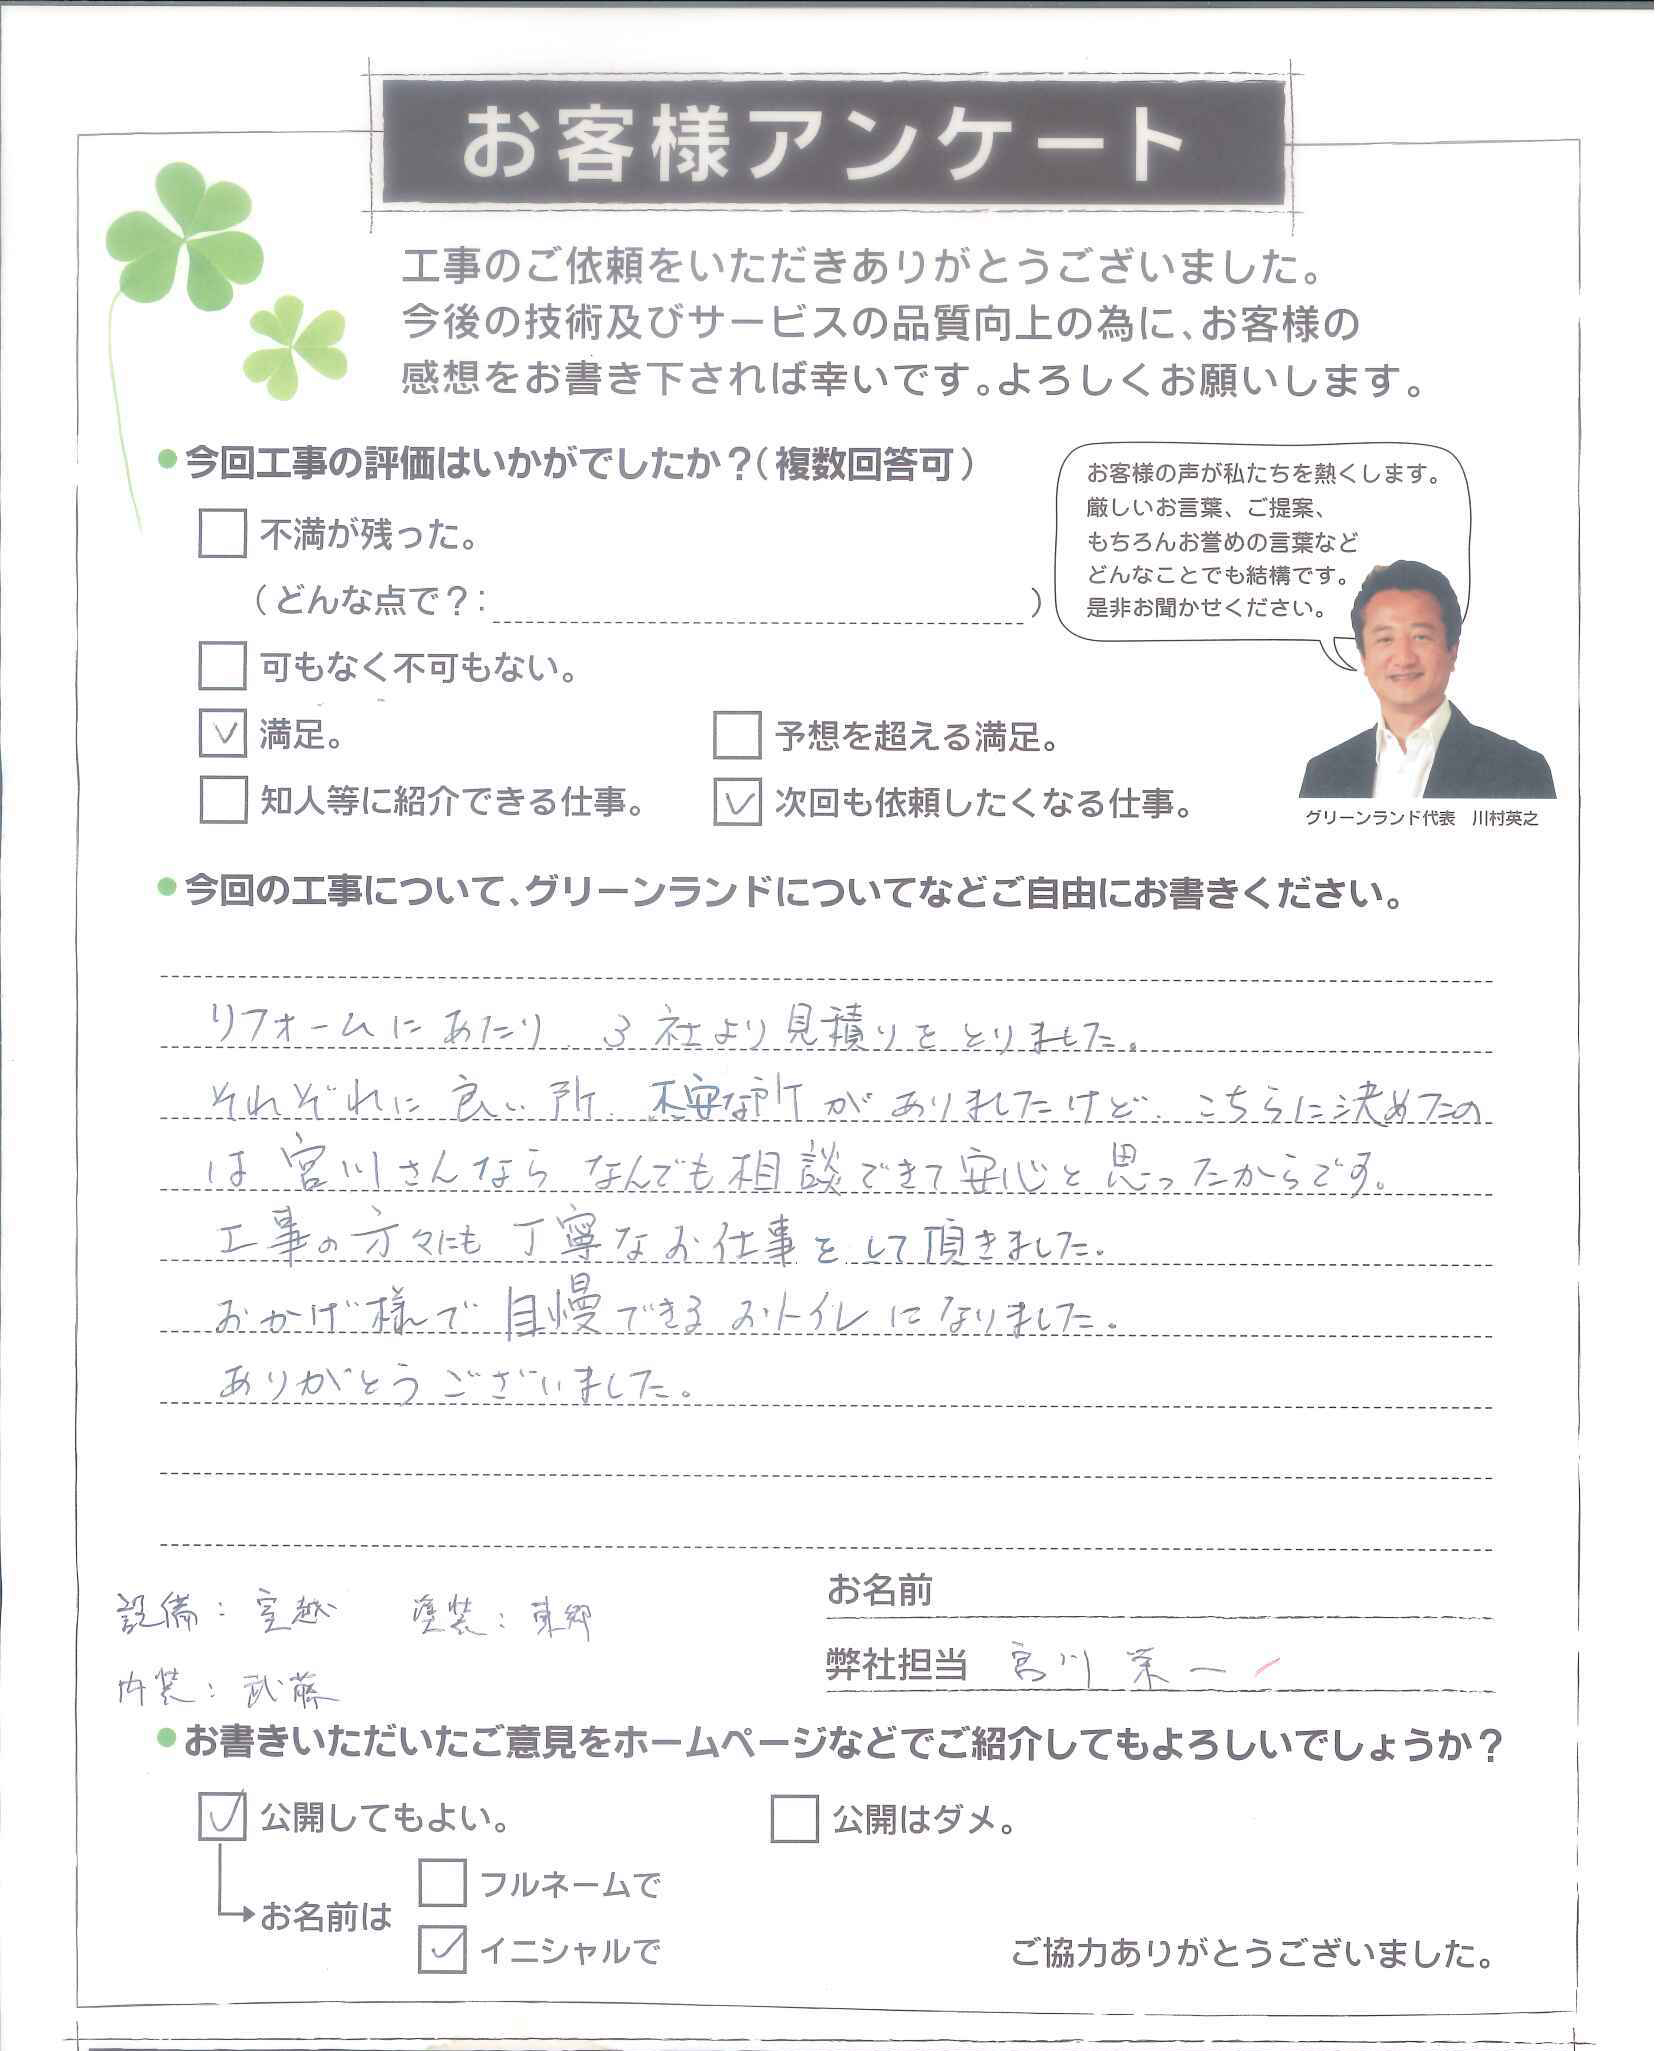 お客様アンケート
工事のご依頼をいただきありがとうございました。
今後の技術及びサービスの品質向上の為に、お客様の
感想をお書き下されば幸いです。よろしくお願いします。
●今回工事の評価はいかがでしたか?(複数回答可)
お客様の声が私たちを熱くします。
厳しいお言葉、ご提案、
もちろんお誉めの言葉など
どんなことでも結構です。
是非お聞かせください。
不満が残った。
(どんな点で?: )
可もなく不可もない。
満足。 予想を超える満足。
知人等に紹介できる仕事。 次回も依頼したくなる仕事。
グリーンランド代表 川村英之
●今回の工事について、グリーンランドについてなどご自由にお書きください。
リフォームにあたり、3社より見積りをとりました。
それぞれに良い所、不安な所がありましたけど、こちらに決めたの
は宮川さんなら なんでも相談できて安心と思ったからです。
工事の方々にも丁寧なお仕事をして頂きました。
おかげ様で自慢できるおトイレになりました。
ありがとうございました。
お名前
設備: 宮越 塗装: 東郷
弊社担当 宮川 栄一
内装: 武藤
●お書きいただいたご意見をホームページなどでご紹介してもよろしいでしょうか?
公開してもよい。 公開はダメ。
フルネームで
お名前は
イニシャルで
ご協力ありがとうございました。